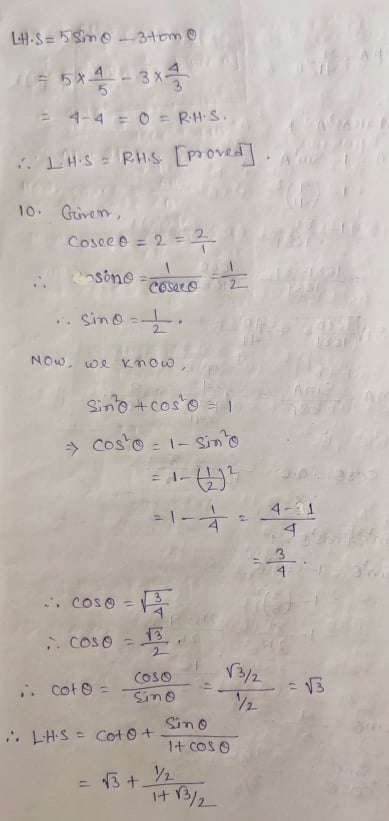 L.H.S = 5 sin θ - 3 tan θ
= 5 × 4/5 - 3 × 4/3
= 4-4 = 0 = R.H.S.
∴ L.H.S = R.H.S. [proved].
10. Given,
Cosec θ = 2 = 2/1
∴ sin θ = 1/cosec θ = 1/2
∴ sin θ = 1/2.
Now, we know,
Sin²θ + cos²θ = 1
⇒ cos²θ = 1 - sin²θ
= 1 - (1/2)²
= 1 - 1/4 = 4-1/4
= 3/4.
∴ cos θ = √3/4
∴ cos θ = √3/2.
∴ cot θ = cos θ/sin θ = √3/2/1/2 = √3
∴ L.H.S = cot θ + sin θ/1+ cos θ
= √3 + 1/2/1+ √3/2